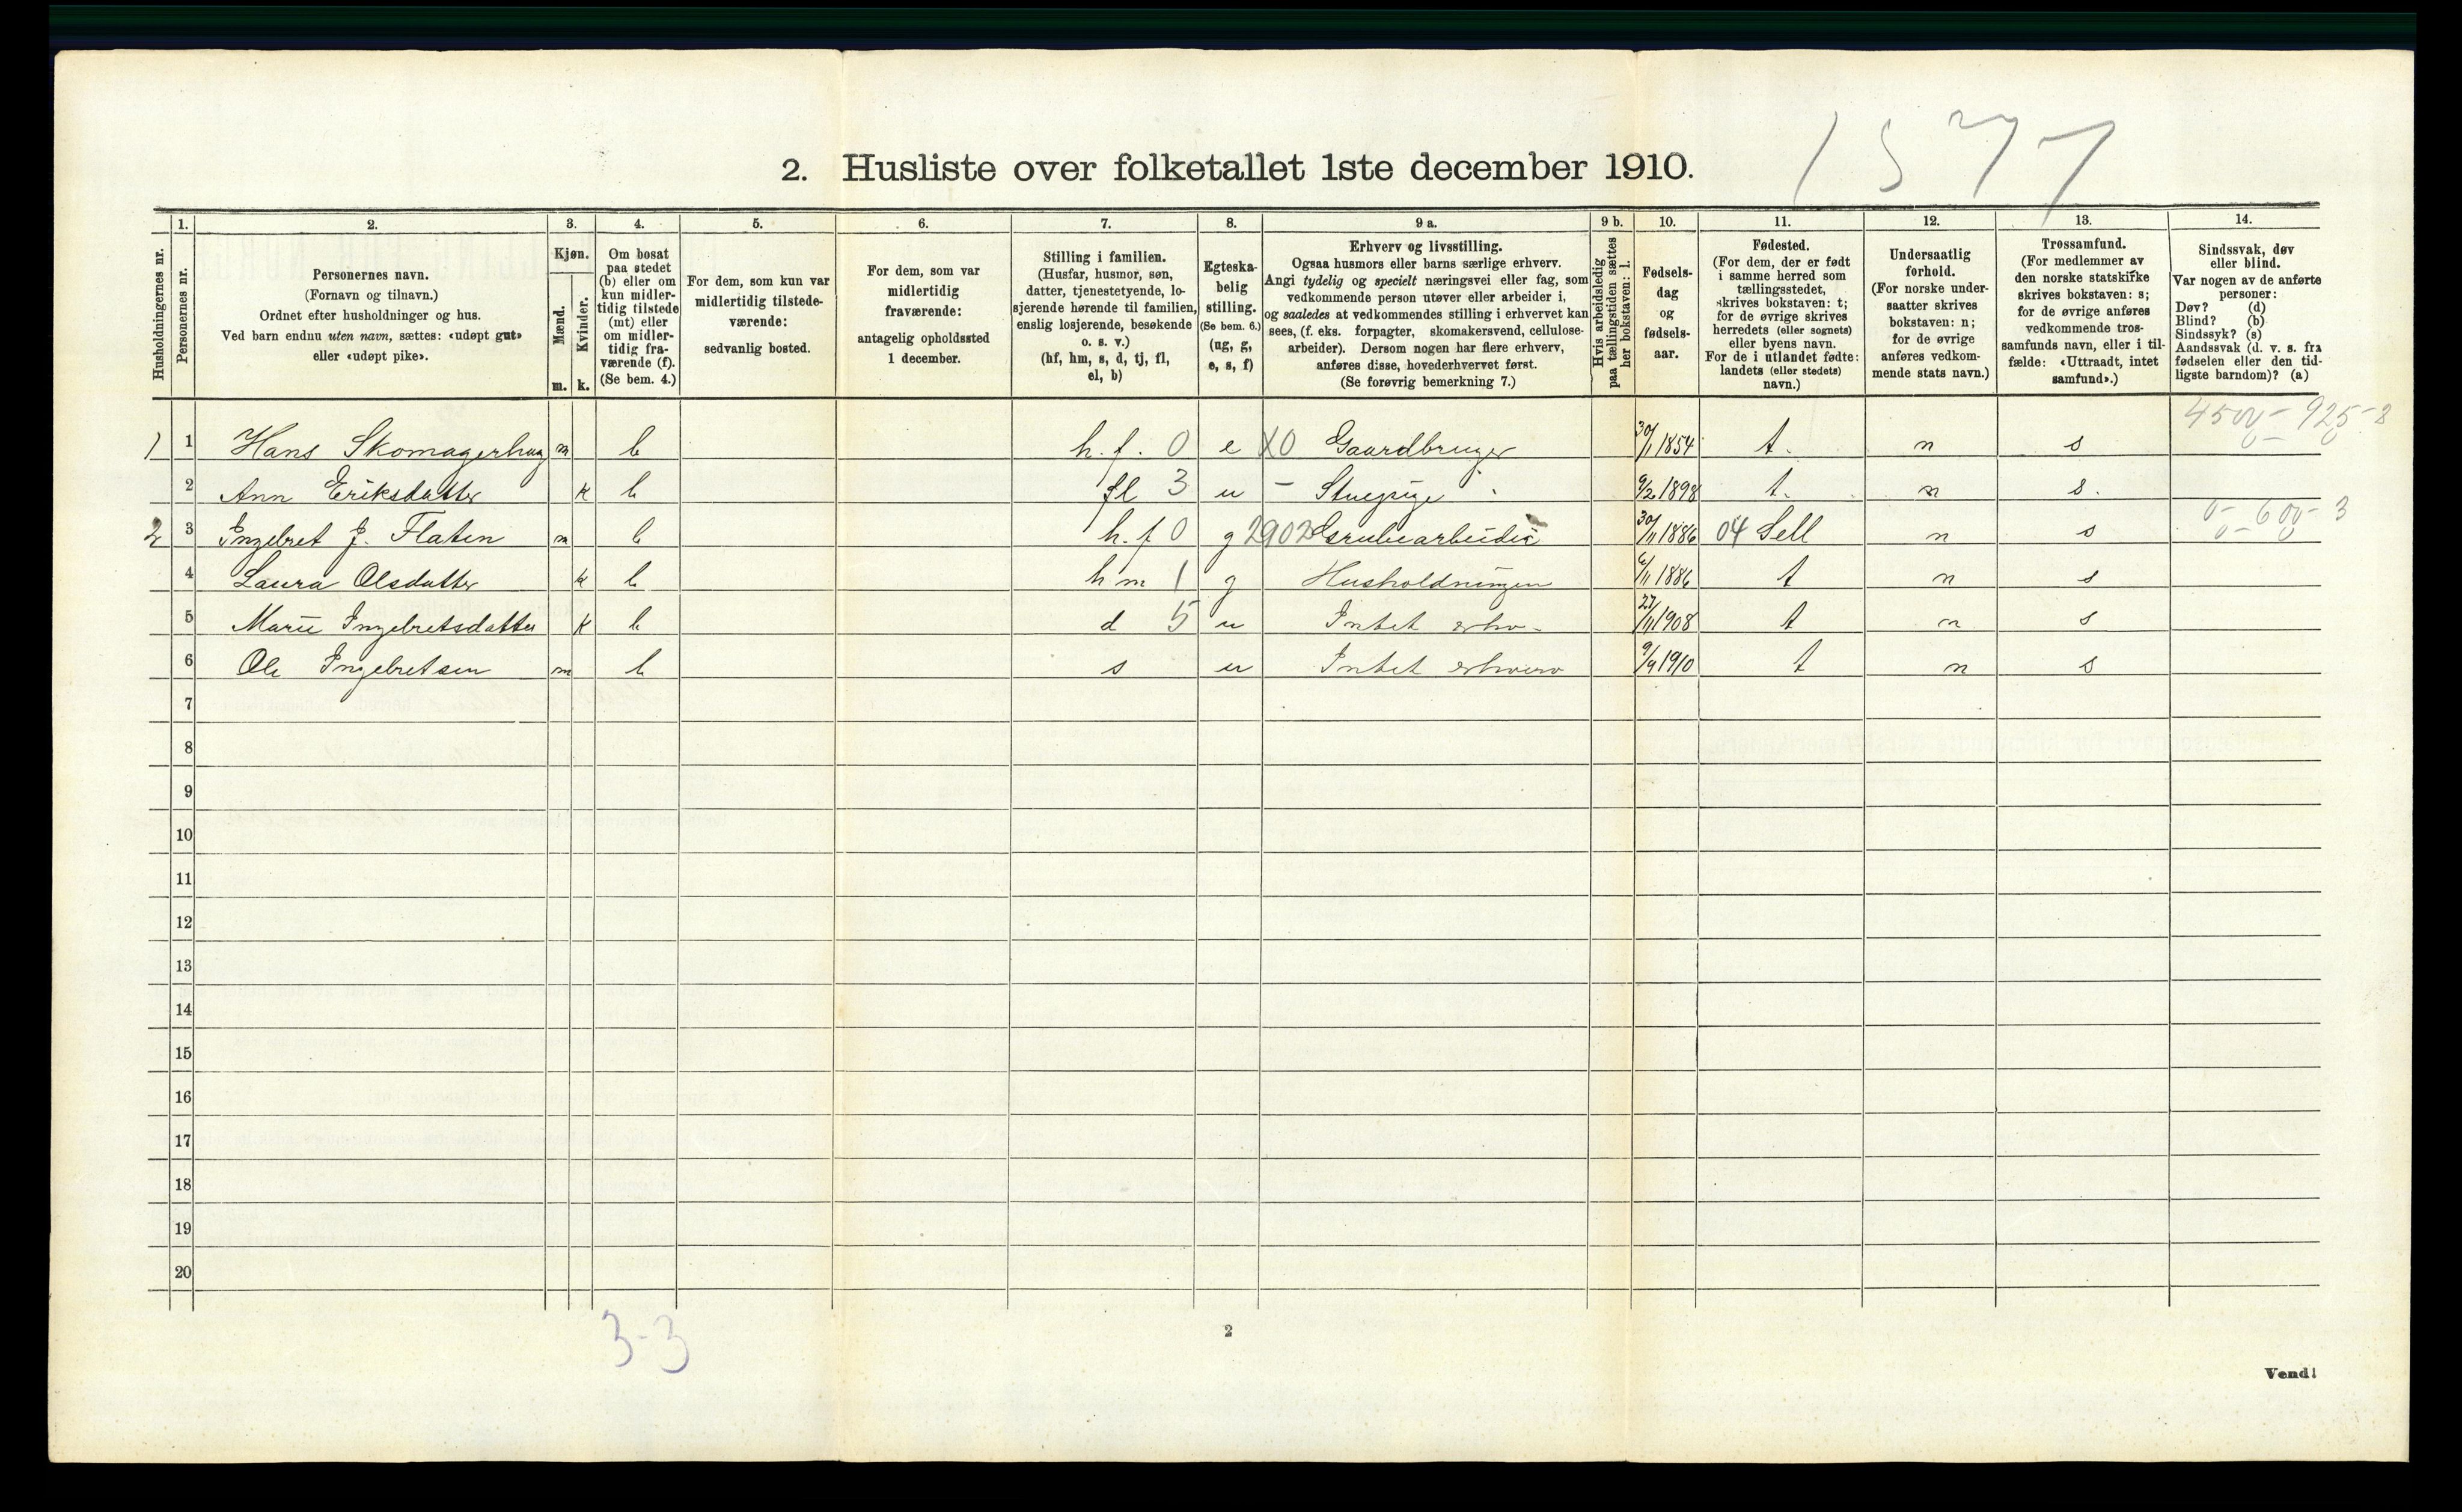 1577
2. Husliste over folketallet 1ste december 1910.
Husholdningernes nr.
1. Personernes nr.
2. Personernes navn. (Fornavn og tilnavn.) Ordnet efter husholdninger og hus. Ved barn endnu uten navn, sættes: «udøpt gut» eller «udøpt pike».
3. Kjøn. Mænd. m. Kvinder. k.
4. Om bosat paa stedet (b) eller om kun midlertidig tilstede (mt) eller om midlertidig fraværende (f). (Se bem. 4.)
5. For dem, som kun var midlertidig tilstedeværende: sedvanlig bosted.
6. For dem, som var midlertidig fraværende: antagelig opholdssted 1 december.
7. Stilling i familien. (Husfar, husmor, søn, datter, tjenestetyende, losjerende hørende til familien, enslig losjerende, besøkende o. s. v.) (hf, hm, s, d, tj, fl, el, b)
8. Egteskabelig stilling. (Se bem. 6.) (ug, g, e, s, f)
9 a. Erhverv og livsstilling. Ogsaa husmors eller barns særlige erhverv. Angi tydelig og specielt næringsvei eller fag, som vedkommende person utøver eller arbeider i, og saaledes at vedkommendes stilling i erhvervet kan sees, (f. eks. forpagter, skomakersvend, cellulosearbeider). Dersom nogen har flere erhverv, anføres disse, hovederhvervet først. (Se forøvrig bemerkning 7.)
9 b. Hvis arbeidsledig paa tællingstiden sættes her bokstaven: l.
10. Fødselsdag og fødselsaar.
11. Fødested. (For dem, der er født i samme herred som tællingsstedet, skrives bokstaven: t; for de øvrige skrives herredets (eller sognets) eller byens navn. For de i utlandet fødte: landets (eller stedets) navn.)
12. Undersaatlig forhold. (For norske undersaatter skrives bokstaven: n; for de øvrige anføres vedkommende stats navn.)
13. Trossamfund. (For medlemmer av den norske statskirke skrives bokstaven: s; for de øvrige anføres vedkommende trossamfunds navn, eller i tilfælde: «Uttraadt, intet samfund».)
14. Sindssvak, døv eller blind. Var nogen av de anførte personer: Døv? (d) Blind? (b) Sindssyk? (s) Aandssvak (d. v. s. fra fødselen eller den tidligste barndom)? (a)
4500 - 925 - 8
1 1 Hans Skomagerhaug m b h. f. 0 e X0 Gaardbruger 30/1 1854 t. n s
2 Ann Eriksdatter k b fl 3 u - Stuepige 9/2 1898 t. n s.
0 - 600 - 3
2 3 Ingebret J. Flaten m b h. f 0 g 2902 Grubearbeider 30/11 1886 04 Sell n s
4 Laura Olsdatter k b h m 1 g Husholdningen 6/11 1886 t n s
5 Marie Ingebretsdatter k b d 5 u Intet erhv- 27/11 1908 t n s
6 Ole Ingebretsen m b s u Intet erhverv 9/9 1910 t n s
7
8
9
10
11
12
13
14
15
16
17
18
19
20
3-3
2
Vend!